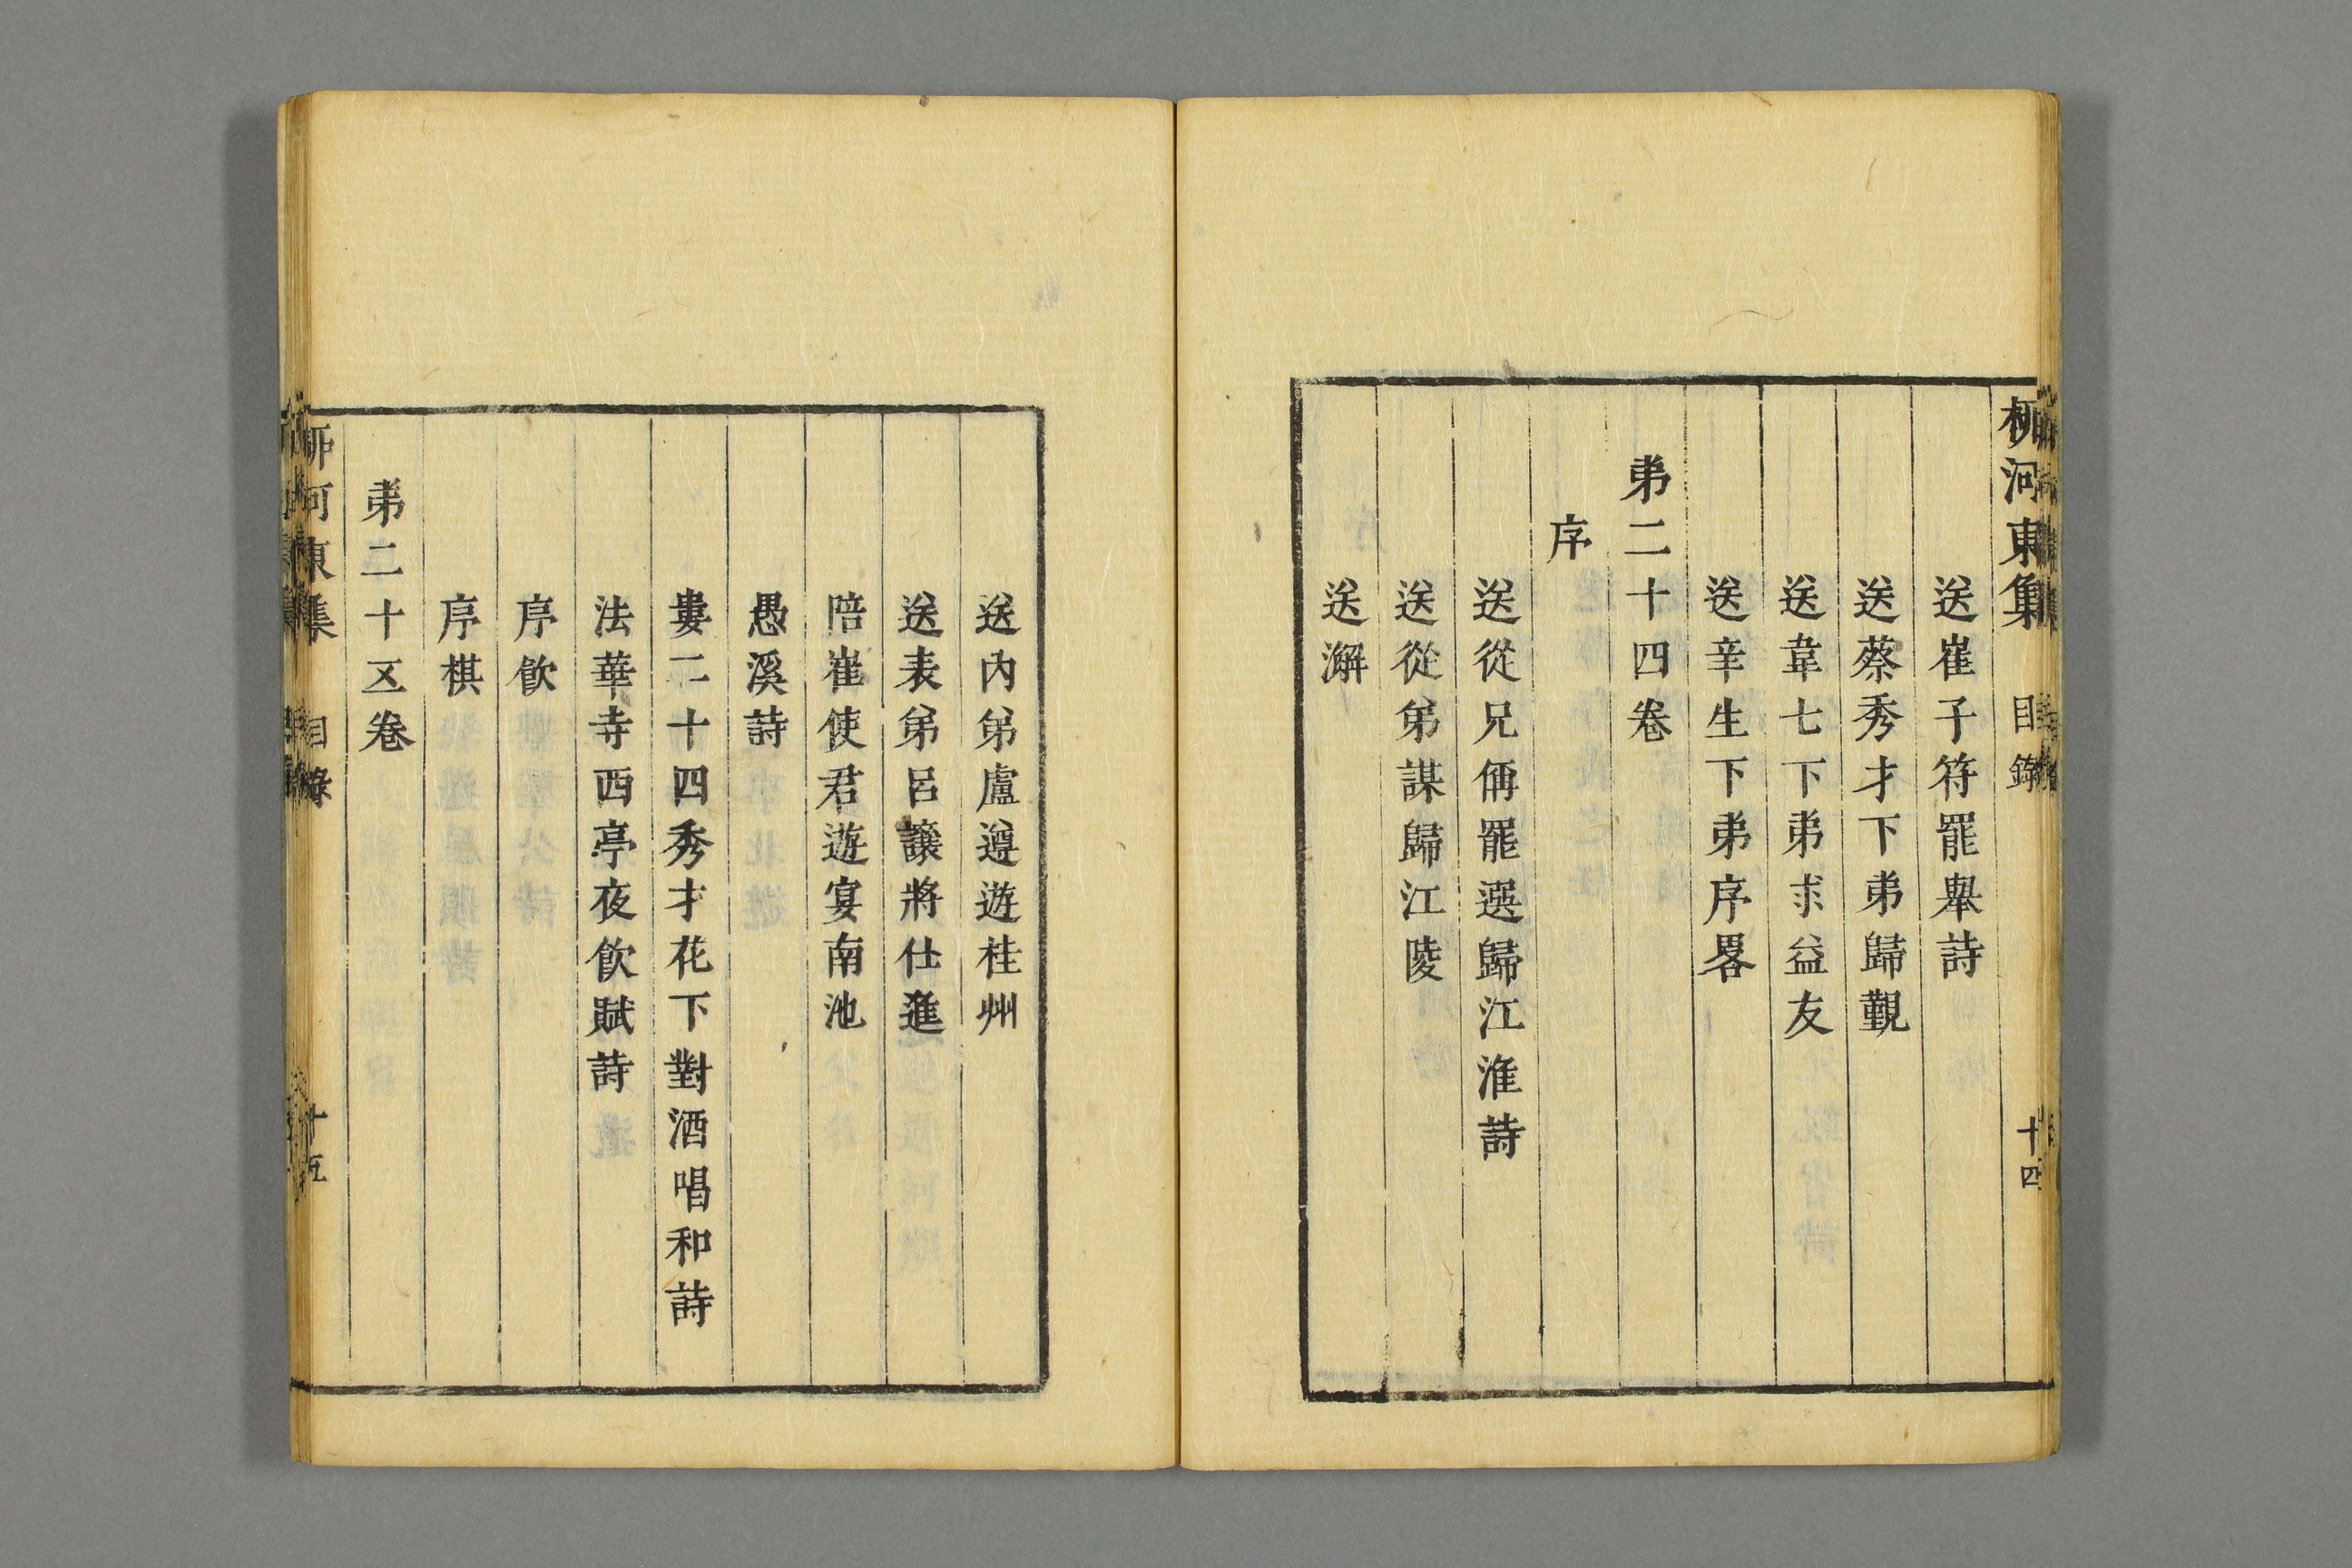 柳河東集 目錄 十四
送崔子符罷舉詩
送蔡秀才下弟歸覲
送韋七下弟求益友
送辛生下弟序畧
弟二十四卷
序
送從兄偁罷選歸江淮詩
送從弟謀歸江陵
送澥
送內弟盧遵遊桂州
送表弟呂讓將仕進
陪崔使君遊宴南池
愚溪詩
婁二十四秀才花下對酒唱和詩
法華寺西亭夜飲賦詩
序飲
序棋
弟二十五卷
柳河東集 目錄 十五